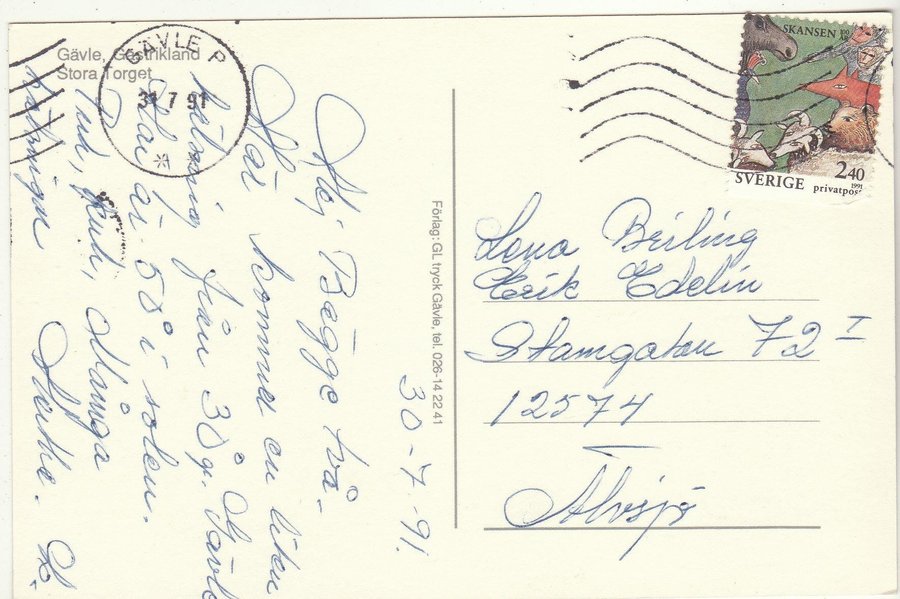 Gävle, Gästrikland
Stora Torget
GÄVLE P
31 7 91
SKANSEN 100 ÅR
2 40
SVERIGE privatpost
1991
Förlag: GL tryck Gävle, tel. 026-14 22 41
30-7-91.
Hej Bägge två.
Här kommer en liten
hälsning från 30gr. Gävle
Här är 50° i solen.
Många
hälsningar
Lena Beiling
Erik Edelin
Stamgatan 72 I
12574
Älvsjö